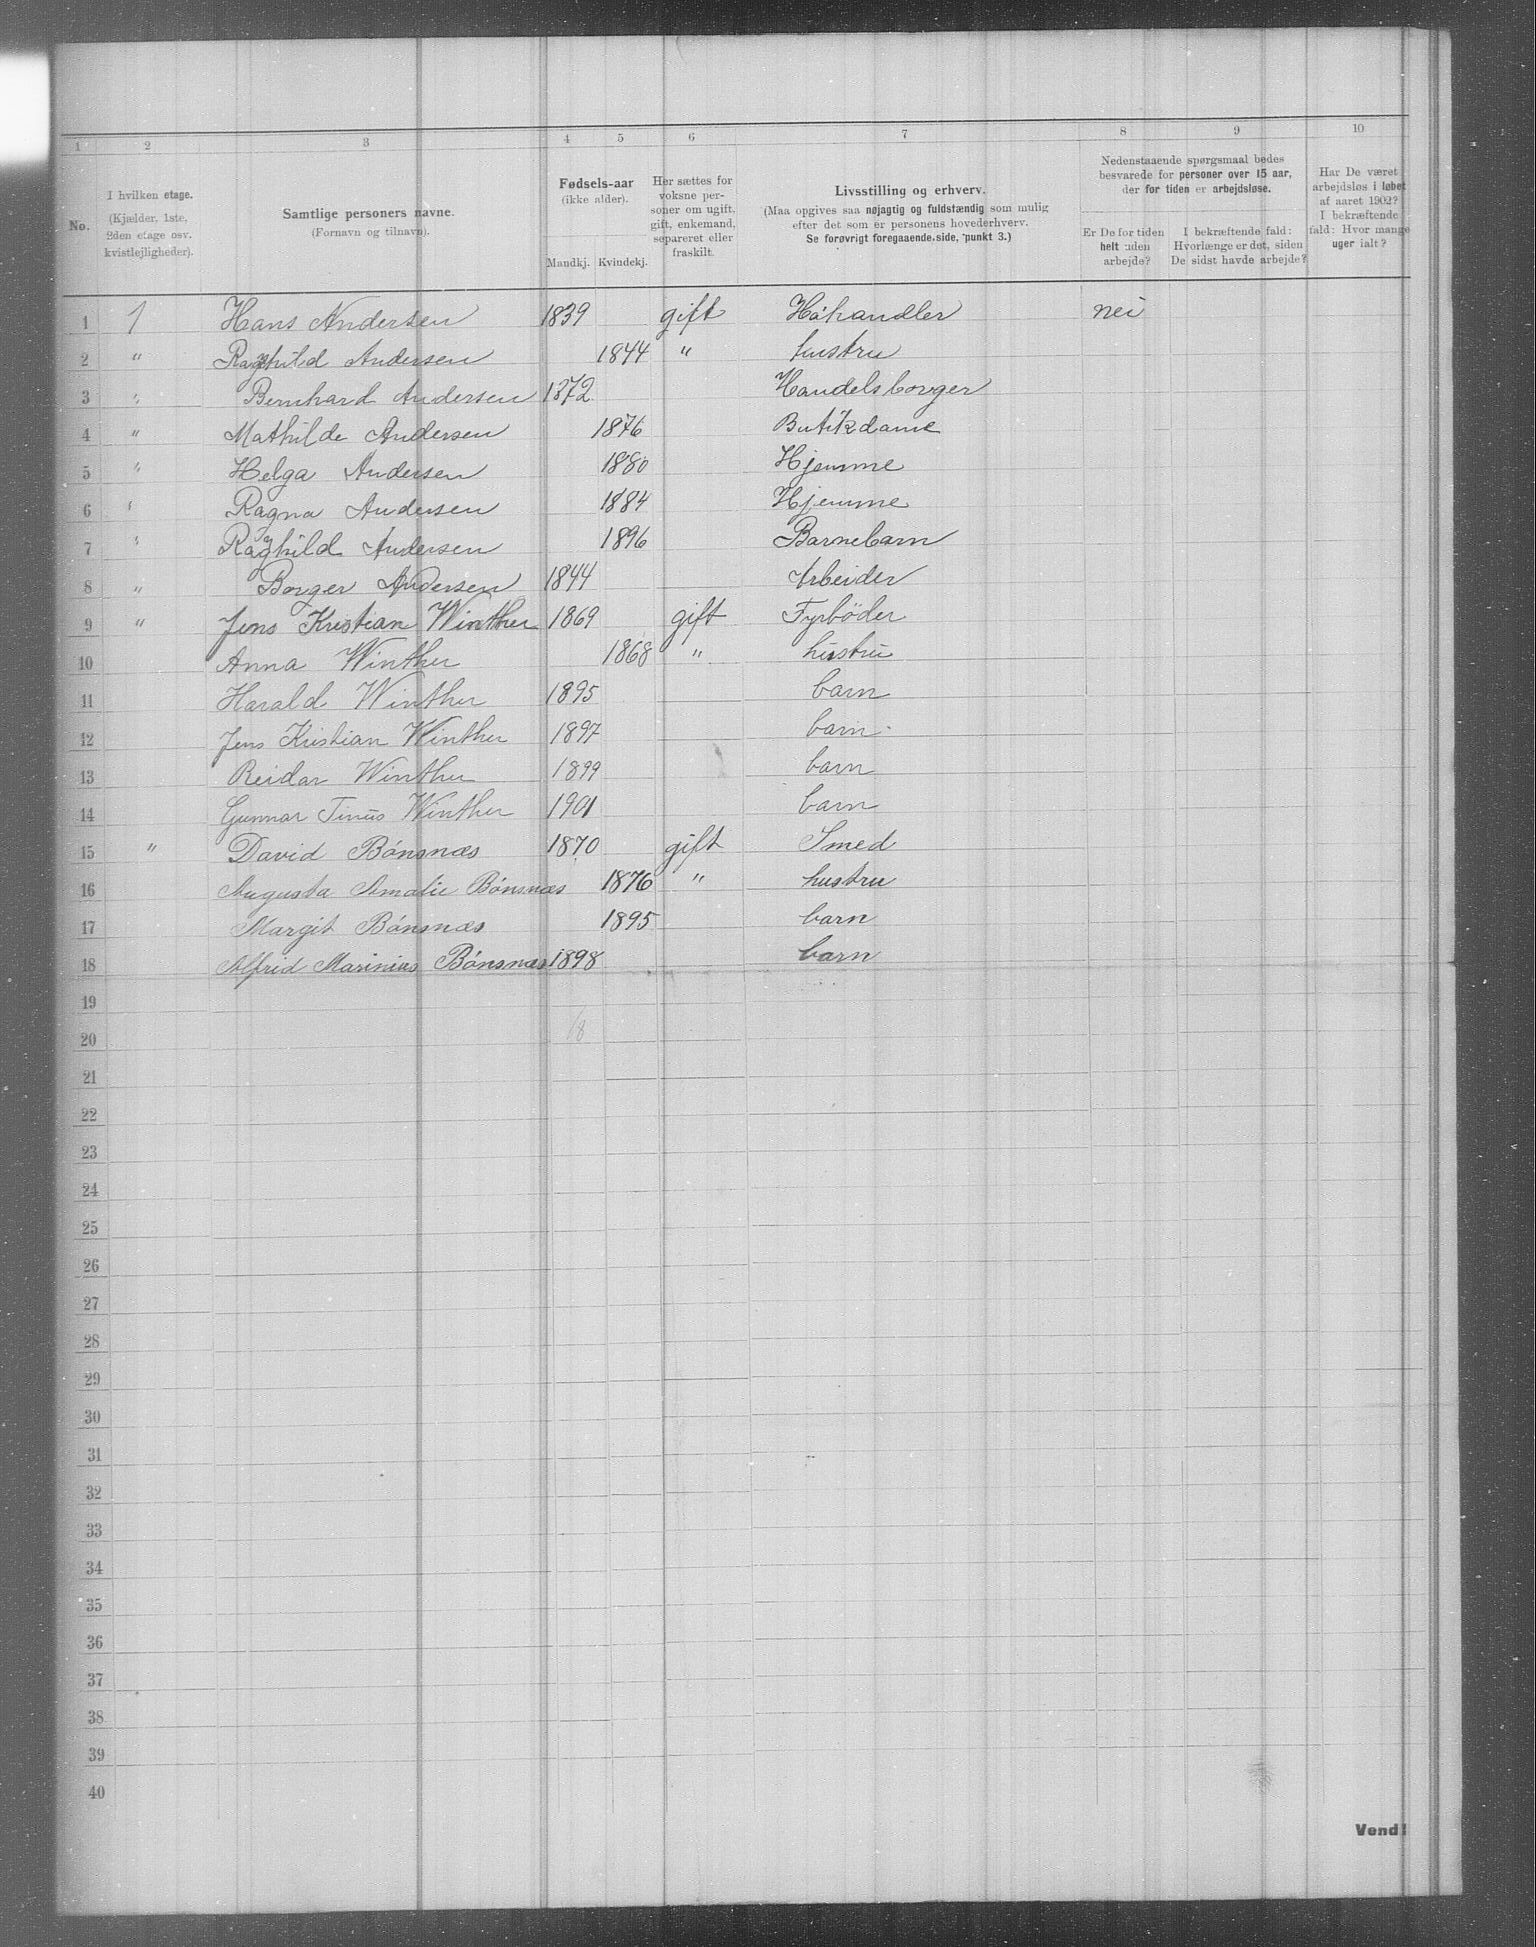 1 2 3 4 5 6 7 8 9 10
No.
I hvilken etage.
(Kjælder, 1ste, 2den etage osv. kvistlejligheder).
Samtlige personers navne.
(Fornavn og tilnavn).
Fødsels-aar
(ikke alder).
Mandkj. Kvindekj.
Her sættes for voksne personer om ugift, gift, enkemand, separeret eller fraskilt.
Livsstilling og erhverv.
(Maa opgives saa nøjagtig og fuldstændig som mulig
efter det som er personens hovederhverv.
Se forøvrigt foregaaende side, punkt 3.)
Nedenstaaende spørgsmaal bedes
besvarede for personer over 15 aar,
der for tiden er arbejdsløse.
Er De for tiden helt uden arbejde?
I bekræftende fald: Hvorlænge er det, siden De sidst havde arbejde?
Har De været arbejdsløs i løbet af aaret 1902? I bekræftende fald: Hvor mange uger ialt?
1 1 Hans Andersen 1839 gift Høhandler nei
2 " Ragnhild Andersen 1844 " hustru
3 " Bernhard Andersen 1872 Handelsborger
4 " Mathilde Andersen 1876 Butikdame
5 " Helga Andersen 1880 Hjemme
6 " Ragna Andersen 1884 Hjemme
7 " Raghild Andersen 1896 Barnebarn
8 " Borger Andersen 1844 Arbeider
9 " Jens Kristian Winther 1869 gift Fyrbøder
10 Anna Winther 1868 " hustru
11 Harald Winther 1895 barn
12 Jens Kristian Winther 1897 barn
13 Reidar Winther 1899 barn
14 Gunnar Tinus Winther 1901 barn
15 " David Bónsnæs 1870 gift Smed
16 Augusta Amalie Bónsnæs 1876 " hustru
17 Margit Bónsnæs 1895 barn
18 Alfrid Marinius Bónsnæs 1898 barn
19
20 18
21
22
23
24
25
26
27
28
29
30
31
32
33
34
35
36
37
38
39
40
Vend!